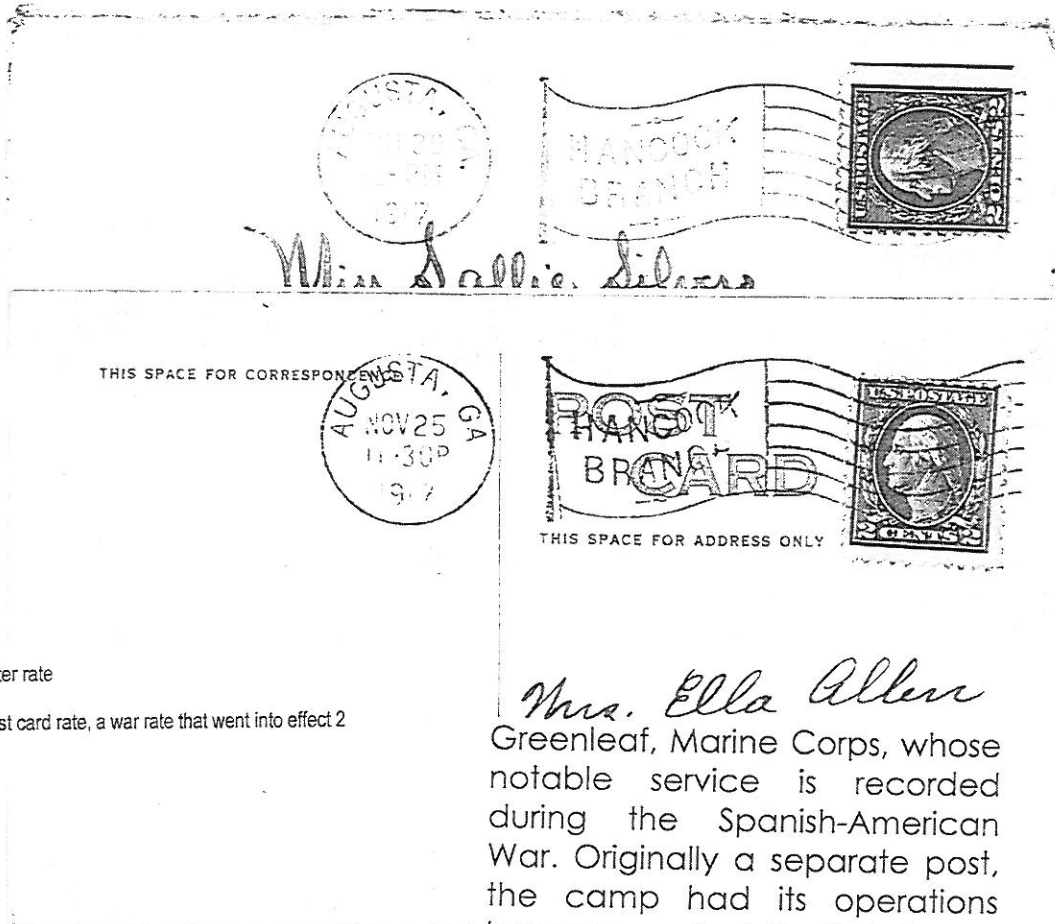 AUGUSTA,
30
1917
HANCOCK
BRANCH
U.S. POSTAGE
2 CENTS 2
Miss Sallie Silvers
THIS SPACE FOR CORRESPONDENCE
AUGUSTA, GA
NOV 25
11-30P
1917
HANCOCK
BRANCH
POST
CARD
U.S. POSTAGE
2 CENTS 2
THIS SPACE FOR ADDRESS ONLY
er rate
st card rate, a war rate that went into effect 2
Mrs. Ella Allen
Greenleaf, Marine Corps, whose
notable service is recorded
during the Spanish-American
War. Originally a separate post,
the camp had its operations